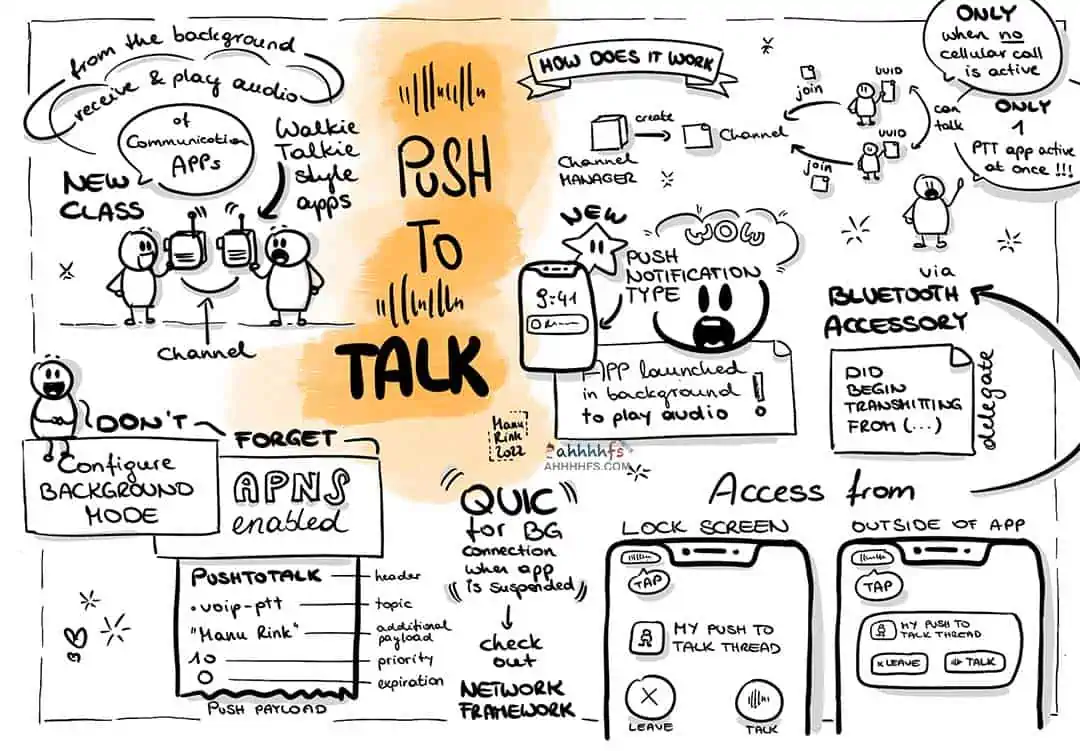 from the background
receive & play audio
of
Communication
APPs
Walkie
Talkie
style
apps
NEW
CLASS
Channel
PUSH
TO
TALK
HOW DOES IT WORK
Channel
MANAGER
create
Channel
join
UUID
join
UUID
can
talk
ONLY
when no
cellular call
is active
ONLY
1
PTT app active
at once !!!
NEW
WOW
PUSH
NOTIFICATION
TYPE
9:41
APP launched
in background
to play audio !
via
BLUETOOTH
ACCESSORY
DID
BEGIN
TRANSMITTING
FROM (...)
delegate
Manu
Rink
2022
ahhhhfs
AHHHHFS.COM
DON'T
FORGET
Configure
BACKGROUND
MODE
APNS
enabled
PUSHTOTALK header
• voip-ptt topic
"Manu Rink" additional
payload
10 priority
0 expiration
PUSH PAYLOAD
QUIC
for BG
connection
when app
is suspended
check
out
NETWORK
FRAMEWORK
Access from
LOCK SCREEN
TAP
MY PUSH TO
TALK THREAD
X
LEAVE
TALK
OUTSIDE OF APP
TAP
MY PUSH TO
TALK THREAD
x LEAVE
TALK